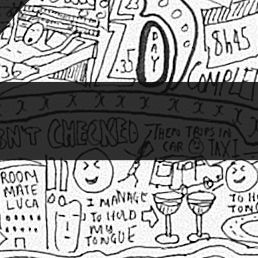 36
35
DAY
8h45
COMPLET
SN'T CHECKED
THEN TRIPS IN
CAR
TAXI
ROOM
MATE
LUCA
I MANAGE
TO HOLD
MY
TONGUE
TO H
TON